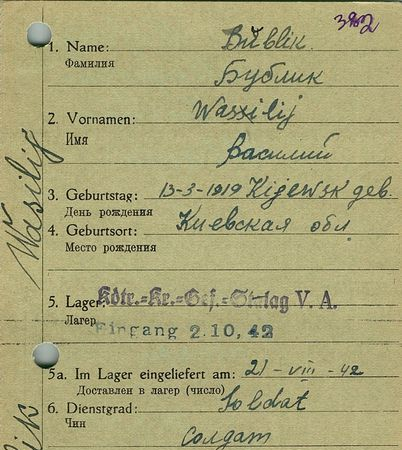 382
1. Name: Bublik
Фамилия Бублик
2. Vornamen: Wassilij
Имя Василий
3. Geburtstag: 13-3-1919 Kijewsk geb.
День рождения
4. Geburtsort: Киевская обл
Место рождения
5. Lager: Kdtr.-Kr.-Gef.-Stalag V. A.
Лагер Eingang 2.10,42
5a. Im Lager eingeliefert am: 21-VIII-42
Доставлен в лагер (число)
6. Dienstgrad: Soldat
Чин солдат
Wasilij